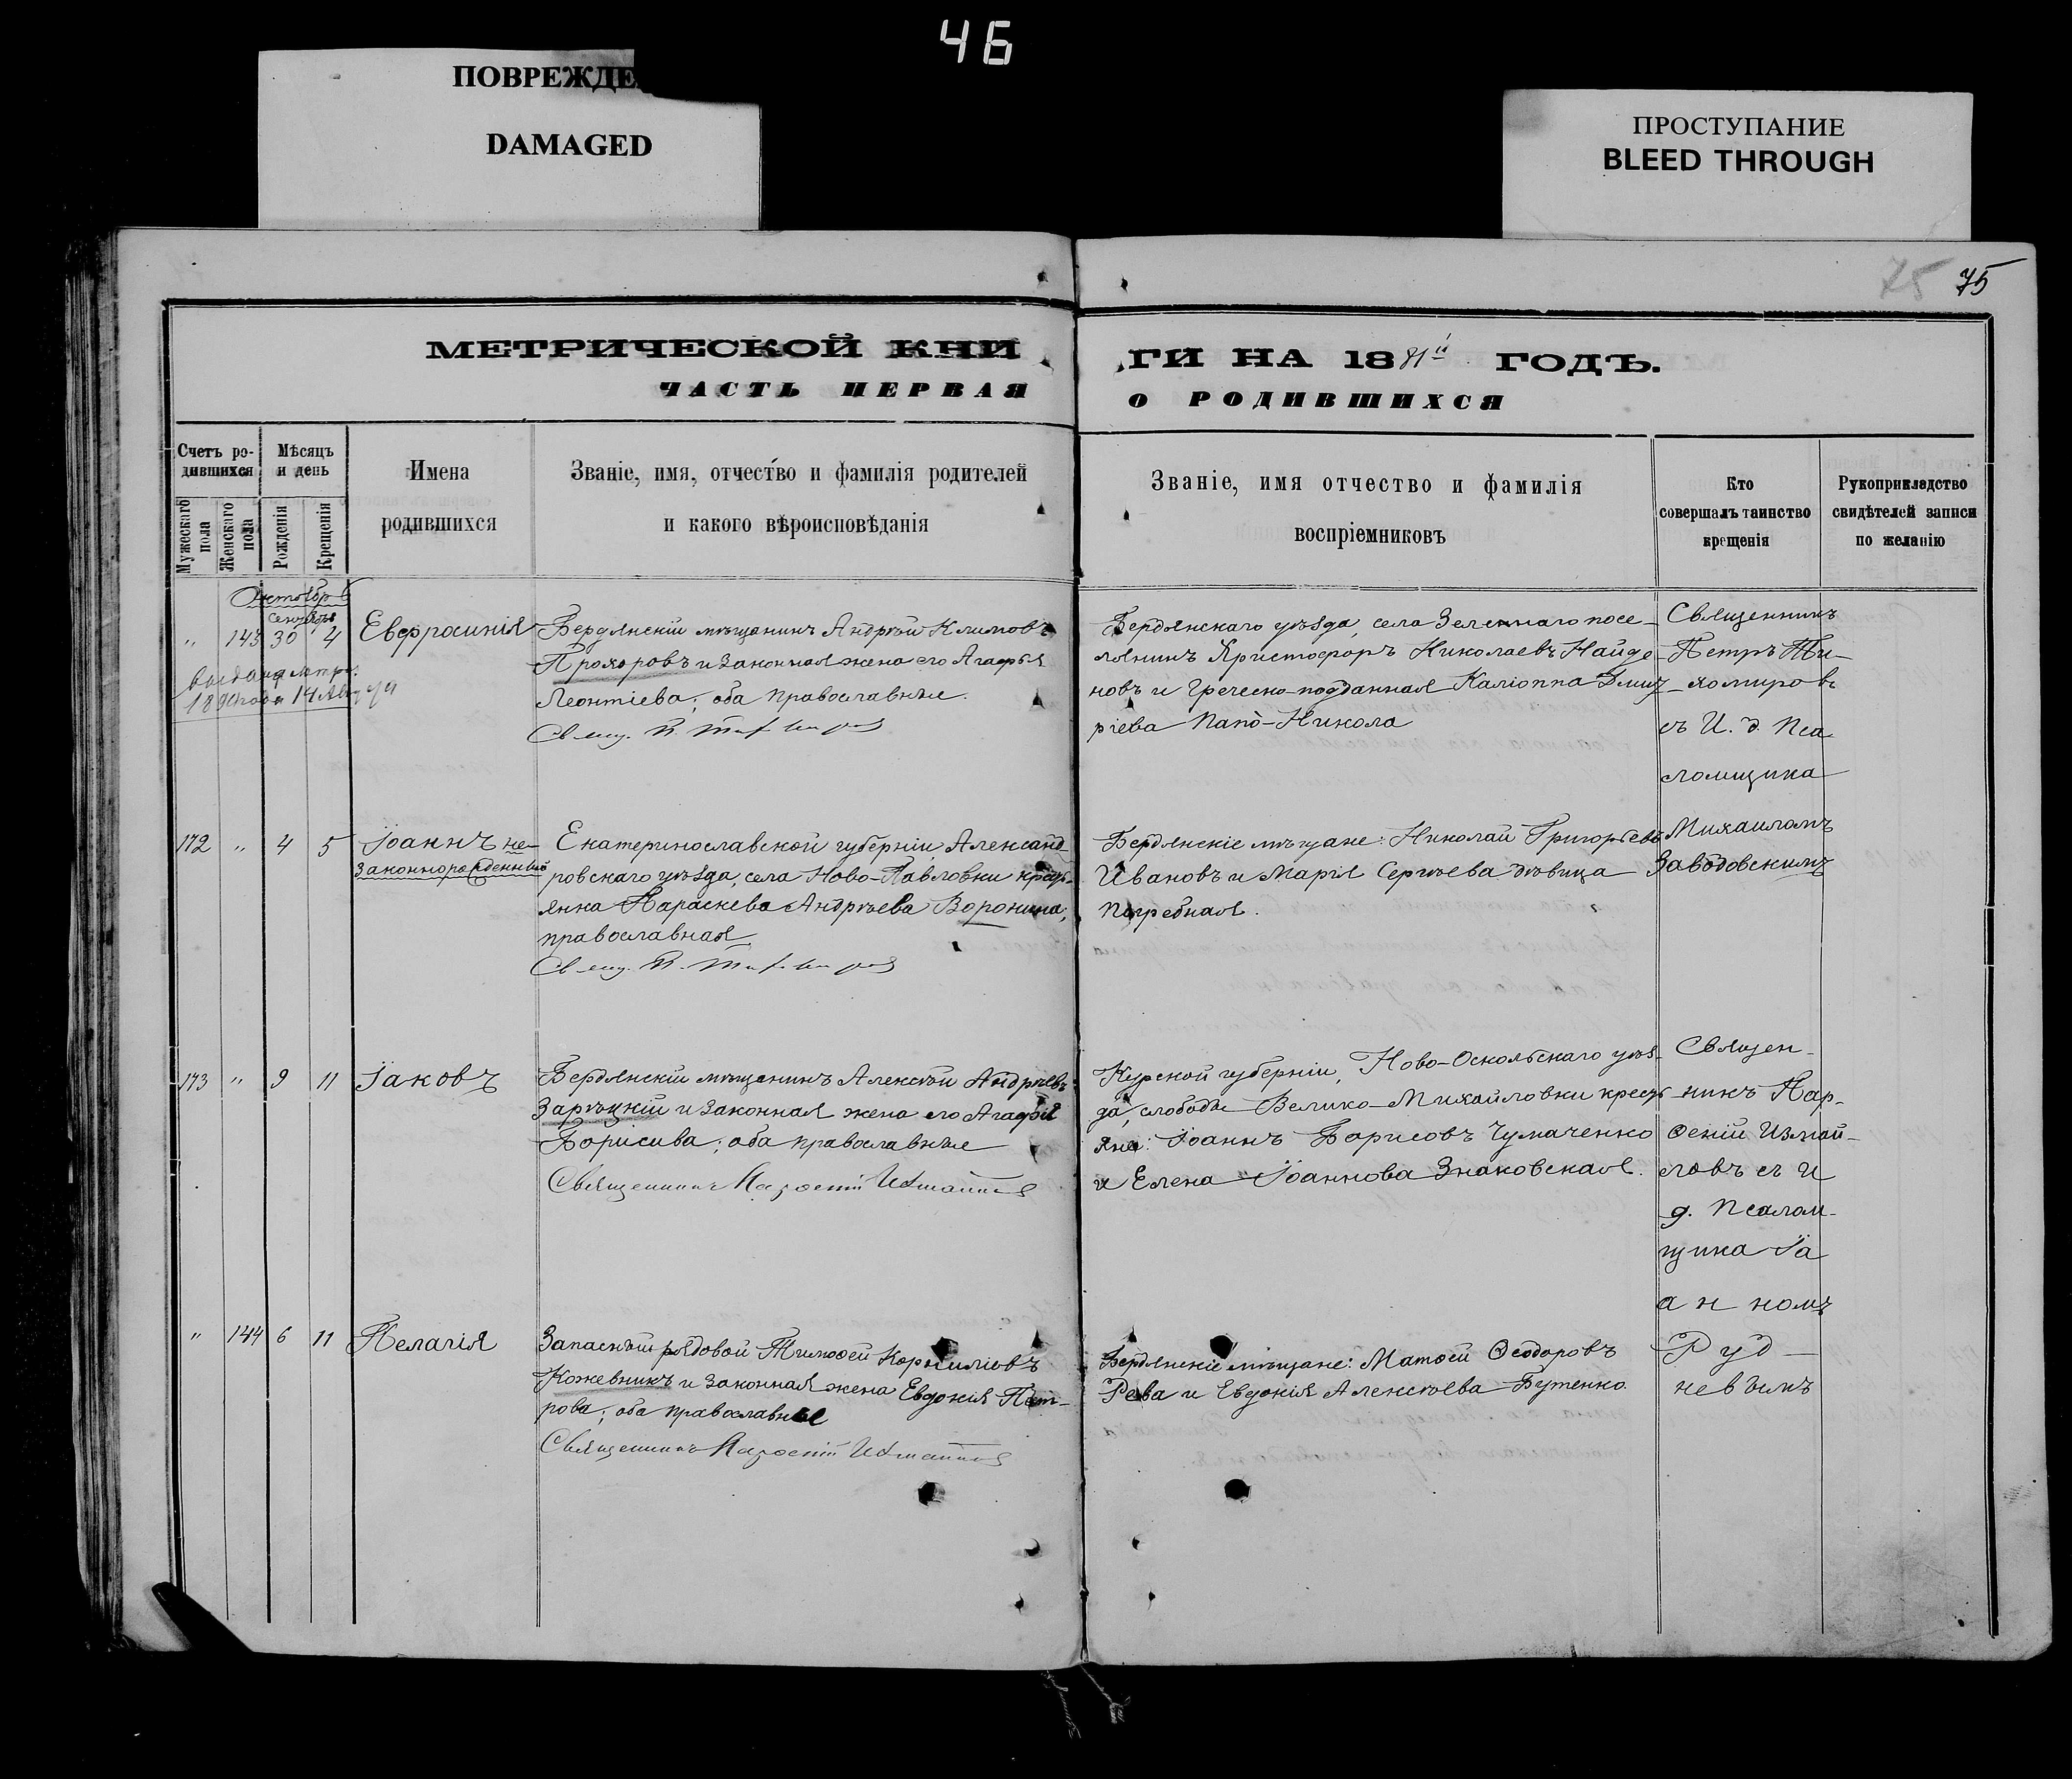 46
ПОВРЕЖДЕ
DAMAGED
ПРОСТУПАНИЕ
BLEED THROUGH
75 75
МЕТРИЧЕСКОЙ КНИ
ЧАСТЬ ПЕРВАЯ
ГИ НА 1881й ГОДЪ.
О РОДИВШИХСЯ
Счетъ ро-
дившихся
Мѣсяцъ
и день
Мужескаго пола
Женскаго пола
Рожденія
Крещенія
Имена
родившихся
Званіе, имя, отчество и фамилія родителей
и какого вѣроисповѣданія
Званіе, имя отчество и фамилія
воспріемниковъ
Кто
совершалъ таинство
крещенія
Рукоприкладство
свидѣтелей записи
по желанію
Октябрь
Сентября
" 143 30 4 Евфросинія
Бердянскій мѣщанинъ Андрей Климовъ
Прохоровъ и законная жена его Агафья
Леонтіева; оба православные.
Бердянскаго уѣзда, села Зеленаго посе-
лянинъ Христофоръ Николаевъ Найде-
новъ и Греческо-подданная Каліоппа Дмит-
ріева Папо-Никола
Священникъ
Петръ Ти-
хомировъ
съ И. д. Пса
ломщика
172 " 4 5 Іоаннъ не-
законнорожденный
Екатеринославской губерніи, Александ-
ровскаго уѣзда, села Ново-Павловки кресть-
янка Параскева Андреева Воронина;
православная
Бердянскіе мѣщане: Николай Григорьевъ
Ивановъ и Марія Сергѣева дѣвица
Погребная.
Михаиломъ
Заводовскимъ
173 " 9 11 Іаковъ
Бердянскій мѣщанинъ Алексѣй Андреевъ
Зарѣцкій и законная жена его Агафія
Борисива; оба православные
Священникъ Парѳеній Измайловъ
Курской губерніи, Ново-Оскольскаго уѣз-
да, слободы Велико-Михайловки кресть-
яне: Іоаннъ Борисовъ Чумаченко
и Елена Іоаннова Знаковская.
Священ-
никъ Пар-
ѳеній Измай-
ловъ съ И
д. Псалом-
щика Іо
анномъ
" 144 6 11 Пелагія
Запасный рядовой Тимоѳей Корниліевъ
Кожевникъ и законная жена Евдокія Пет-
рова; оба православные
Священникъ Парѳеній Измайловъ
Бердянскіе мѣщане: Матѳей Ѳеодоровъ
Рева и Евдокія Алексѣева Бутенко.
Руд-
невымъ